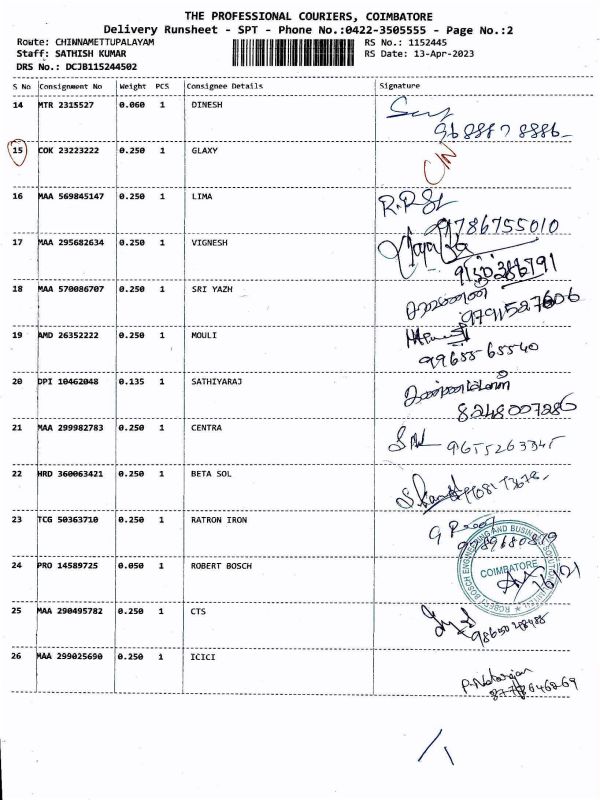 THE PROFESSIONAL COURIERS, COIMBATORE
Delivery Runsheet - SPT - Phone No.:0422-3505555 - Page No.:2
Route: CHINNAMETTUPALAYAM RS No.: 1152445
Staff: SATHISH KUMAR RS Date: 13-Apr-2023
DRS No.: DCJB115244502
S No Consignment No Weight PCS Consignee Details Signature
14 MTR 2315527 0.060 1 DINESH
15 COK 23223222 0.250 1 GLAXY
16 MAA 569845147 0.250 1 LIMA
9786755010
17 MAA 295682634 0.250 1 VIGNESH
18 MAA 570086707 0.250 1 SRI YAZH
19 AMD 26352222 0.250 1 MOULI
99655-65540
20 DPI 10462048 0.135 1 SATHIYARAJ
8248007286
21 MAA 299982783 0.250 1 CENTRA
9655263345
22 HRD 360063421 0.250 1 BETA SOL
23 TCG 50363710 0.250 1 RATRON IRON
9789680879
24 PRO 14589725 0.050 1 ROBERT BOSCH
COIMBATORE
25 MAA 290495782 0.250 1 CTS
26 MAA 299025690 0.250 1 ICICI
P. Natarajan